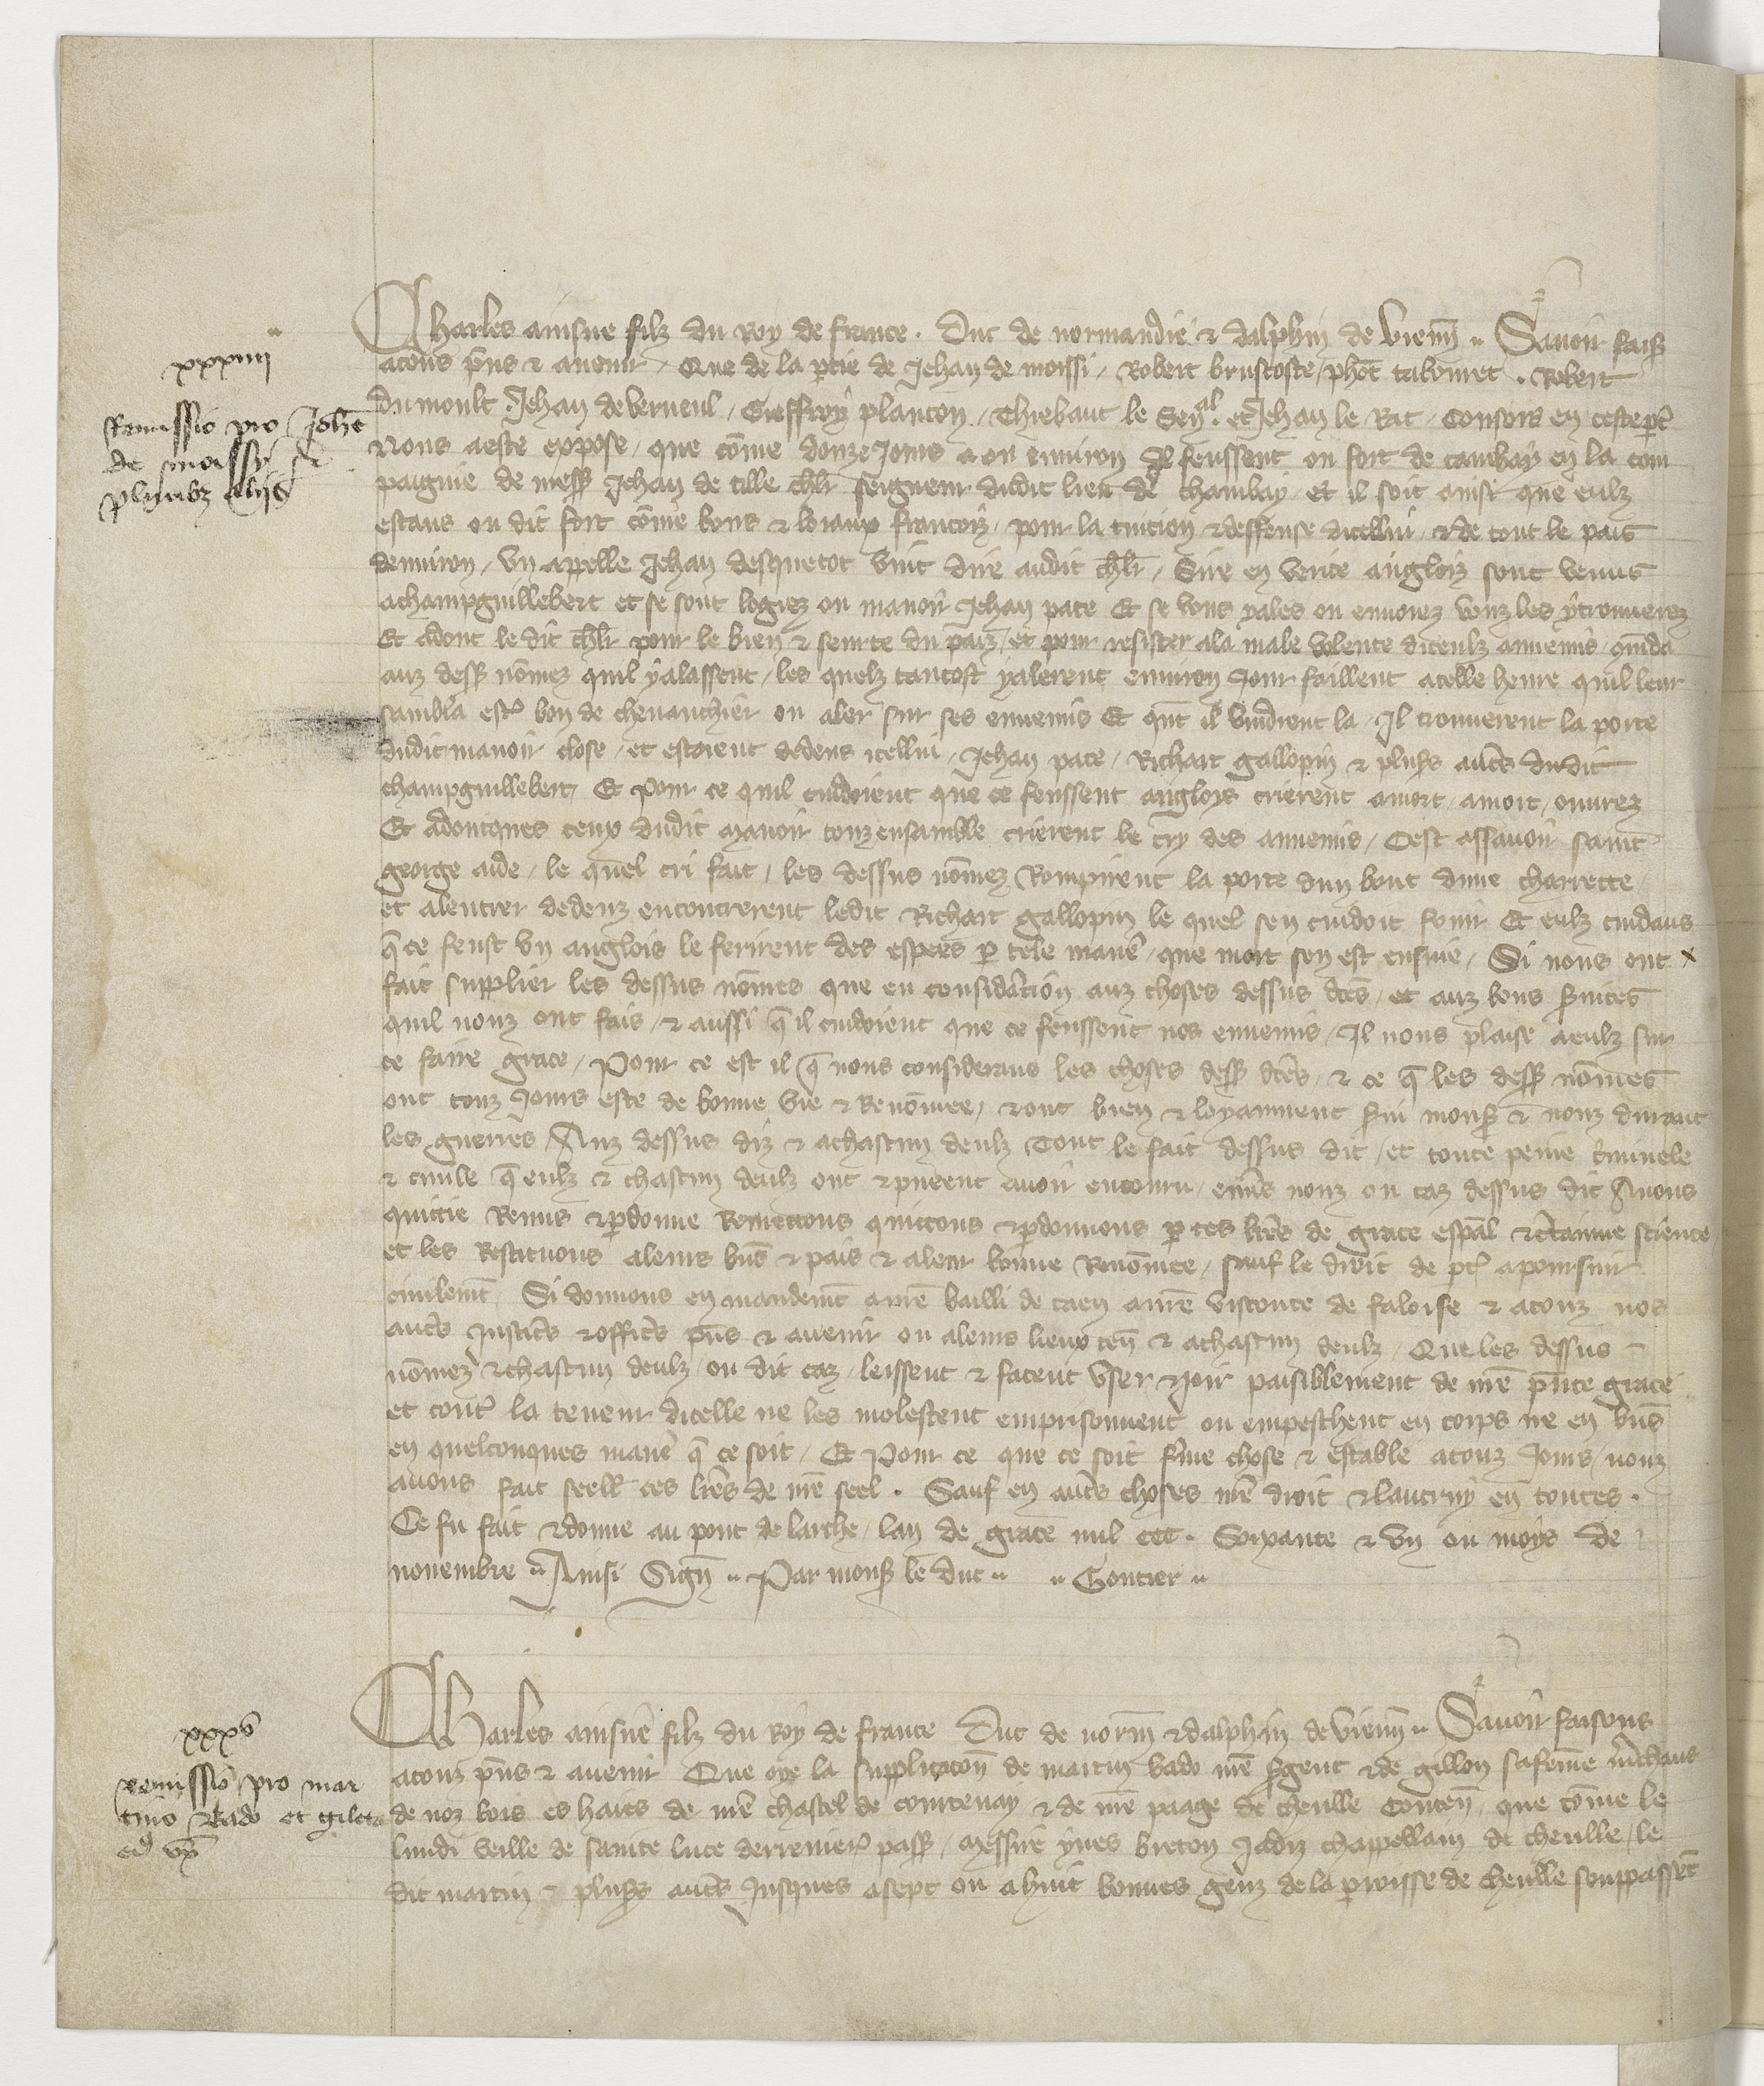 xxxiiii
Remissio pro Johe
de moissy &
pluribz aliis
Charles ainsne filz du Roy de france . Duc de normandie & dalphin de vienn . Savoir faisons
a touz pns & avenir . Que de la ptie de Jehan de moissi , Robert bruscoste , phot tabouret . Robert
du moult Jehan de verneul , Gieffroy plancon , Thiebaut le Senal . et Jehan le Rat , Consors en ceste pt
Nous a este expose , que come donze jours a ou environ Il feussent ou fort de cambay en la com
paignie de mess Jehan de tille chlr seigneur dudit lieu de chambay , Et il soit ainsi que eulz
estans ou dit fort come bons & loiaux francois , pour la tuicion & deffense dicellui , & de tout le pais
denviron , vn apelle Jehan desquetot vint dire audit chlr , Sire en verite anglois sont venus
a champguillebert et se sont logiez ou manoir Jehan pate Et se vous y ales ou envoiez vouz les y trouverez
Et adont le dit chlr pour le bien & seurte du paiz , et pour resister a la male volente diceulz annemis , comda
auz dess nomez quil y alassent , les quelz tantost y alerent environ jour faillent a celle heure quil leur
sambla est bon de chevauchier ou aler sur ses ennemis Et qnt il vindrent la , Il trouverent la porte
dudit manoir close , et estoient dedens icellui , Jehan pate , Richart gallopin & plusrs autres dudit
champguillebert , Et pour ce quil cuidoient que ce feussent angloys crierent a mort , a mort , ouvrez
Et adoncques ceux dudit manoir touz ensamble crierent le cry des annemis , Cest assavoir saint
george aide , le quel cri fait , les dessus nomez Rompirent la porte dun bout dune charrette ,
et a lentrer dedenz encontrerent ledit Richart gallopin le quel sen cuidoit fouir Et eulz cuidans
q ce feust vn anglois le ferirent des espees p tele maniere , que mort sen est ensuie , Si nous ont
fait supplier les dessus nomes que en consideracion auz choses dessus dtes , et auz bons services
quil nouz ont fais , & aussi q il cuidoient que ce feussent nos ennemis , Il nous plaise a eulz sur
ce faire grace , Pour ce est il q nous considerans les choses dess dtes , & ce q les dess nomes
ont touz jours este de bonne vie & Renomee , & ont bien & loyaument servi mons & nouz durant
les guerres , Auz dessus diz & a chascun deulz Tout le fait dessus dit , et toute peine criminele
& civile q eulz & chascun deulz ont & pueent avoir encouru envers nouz ou caz dessus dit Avons
quittie Remis & pdonne Remettons quittons & pdonnons p ces lres de grace espal & ctainne science
et les Restituons a leurs bns & pais & a leur bonne Renomee , sauf le droit de pt a poursuir
civilemt Si donnons en mandemt a nre bailli de caen a nre visconte de faloise & a touz nos
autres justiciers & officiers pns & avenir ou a leurs lieux ten & a chascun deulz , Que les dessus
nomez & chascun deulz , ou dit caz , leissent & facent vser & joir paisiblement de nre pnte grace
et cont la teneur dicelle ne les molestent emprisonnent ou empeschent en corps ne en bns
en quelconques manie q ce soit , Et Pour ce que ce soit ferme chose & estable a touz jours , nouz
avons fait seell ces lres de nre seel . Sauf en autres choses nre droit & lautruy en toutes .
Ce fu fait & donne au pont de larche , lan de grace mil ccc . Soixante & vn ou moys de
novembre .. Ainsi Sign .. Par mons le duc .. .. Gontier ..
xxxv
remissio pro mar
tino Bado et gileta
ei ux
Charles ainsne filz du Roy de france Duc de norm & dalphin de vienn .. Savoir faisons
a touz pns & avenir Que oye la supplicacon de martin bado nre sergent & de gillon sa feme mchans
de noz bois es haies de nre chastel de courtenay & de nre paage de cheulle Conten , que come le
lundi veille de sainte luce derrenier pass , messire yves breton jadiz chappellain de cheulle , le
dit martin & plusrs autres jusques a sept ou a huit bonnes genz de la prroisse de cheulle souppassent